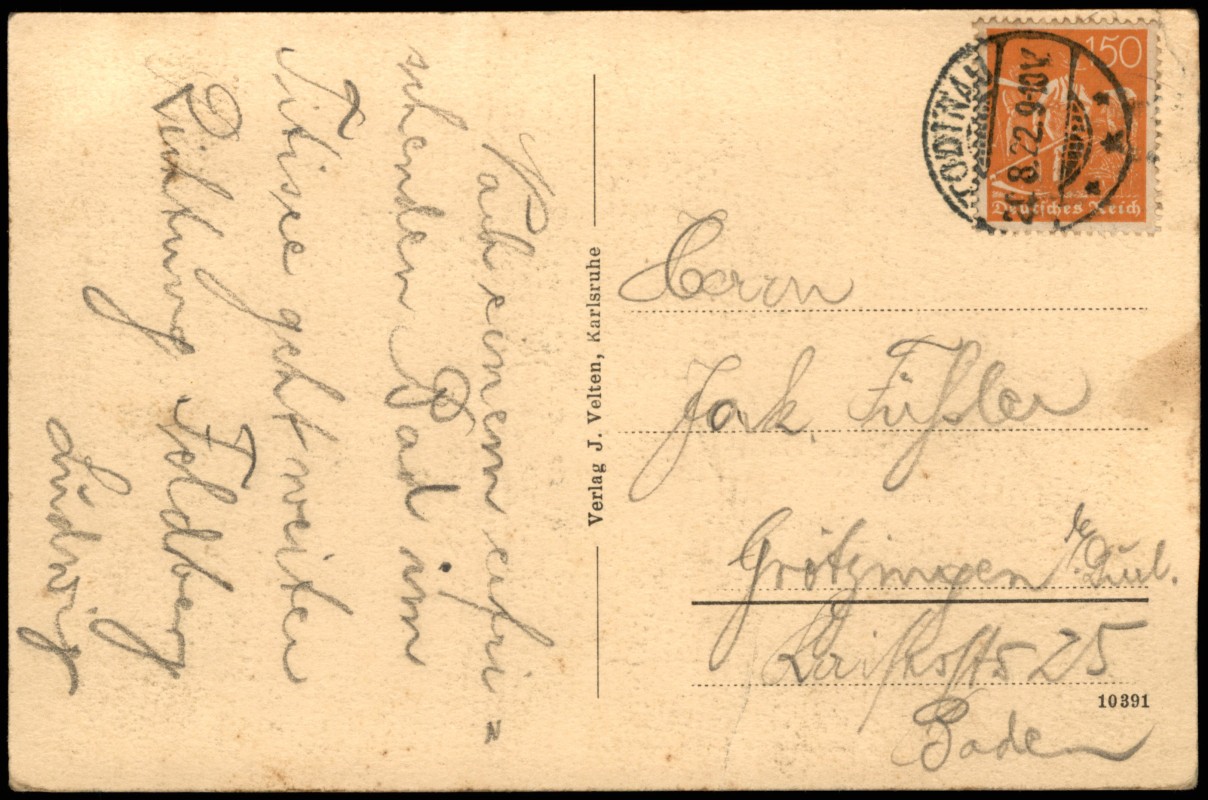 Nach einem erfri=
schenden Bad im
Titisee geht weiter
Richtung Feldberg
Ludwig
Verlag J. Velten, Karlsruhe
150
Deutsches Reich
TODTNAU
8.22.9-10V.
Herrn
Jak. Füßler
Grötzingen b/Dul.
25
Baden
10391